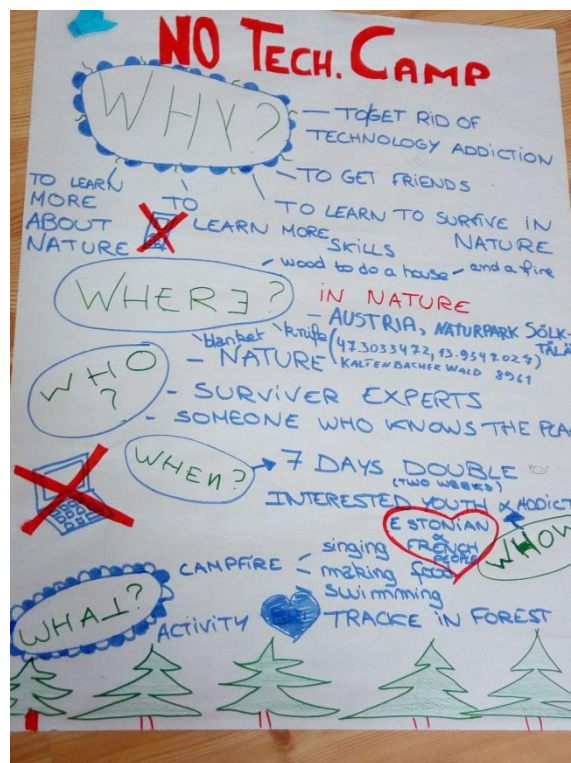 NO TECH. CAMP
WHY?
— TO GET RID OF
TECHNOLOGY ADDICTION
— TO GET FRIENDS
TO LEARN
MORE
ABOUT
NATURE
TO
LEARN MORE
SKILLS
TO LEARN TO SURVIVE IN
NATURE
WHERE?
wood to do a house — and a fire
IN NATURE
— AUSTRIA, NATURPARK SÖLK-
blanket knife
KALTENBACHER WALD 8961
WHO
?
— NATURE
- SURVIVER EXPERTS
- SOMEONE WHO KNOWS THE
WHEN?
7 DAYS DOUBLE
(TWO WEEKS)
INTERESTED YOUTH & ADDICT
ESTONIAN
&
FRENCH
PEOPLE
WHAT?
CAMPFIRE
singing
making food
swimming
ACTIVITY
TRACKE IN FOREST